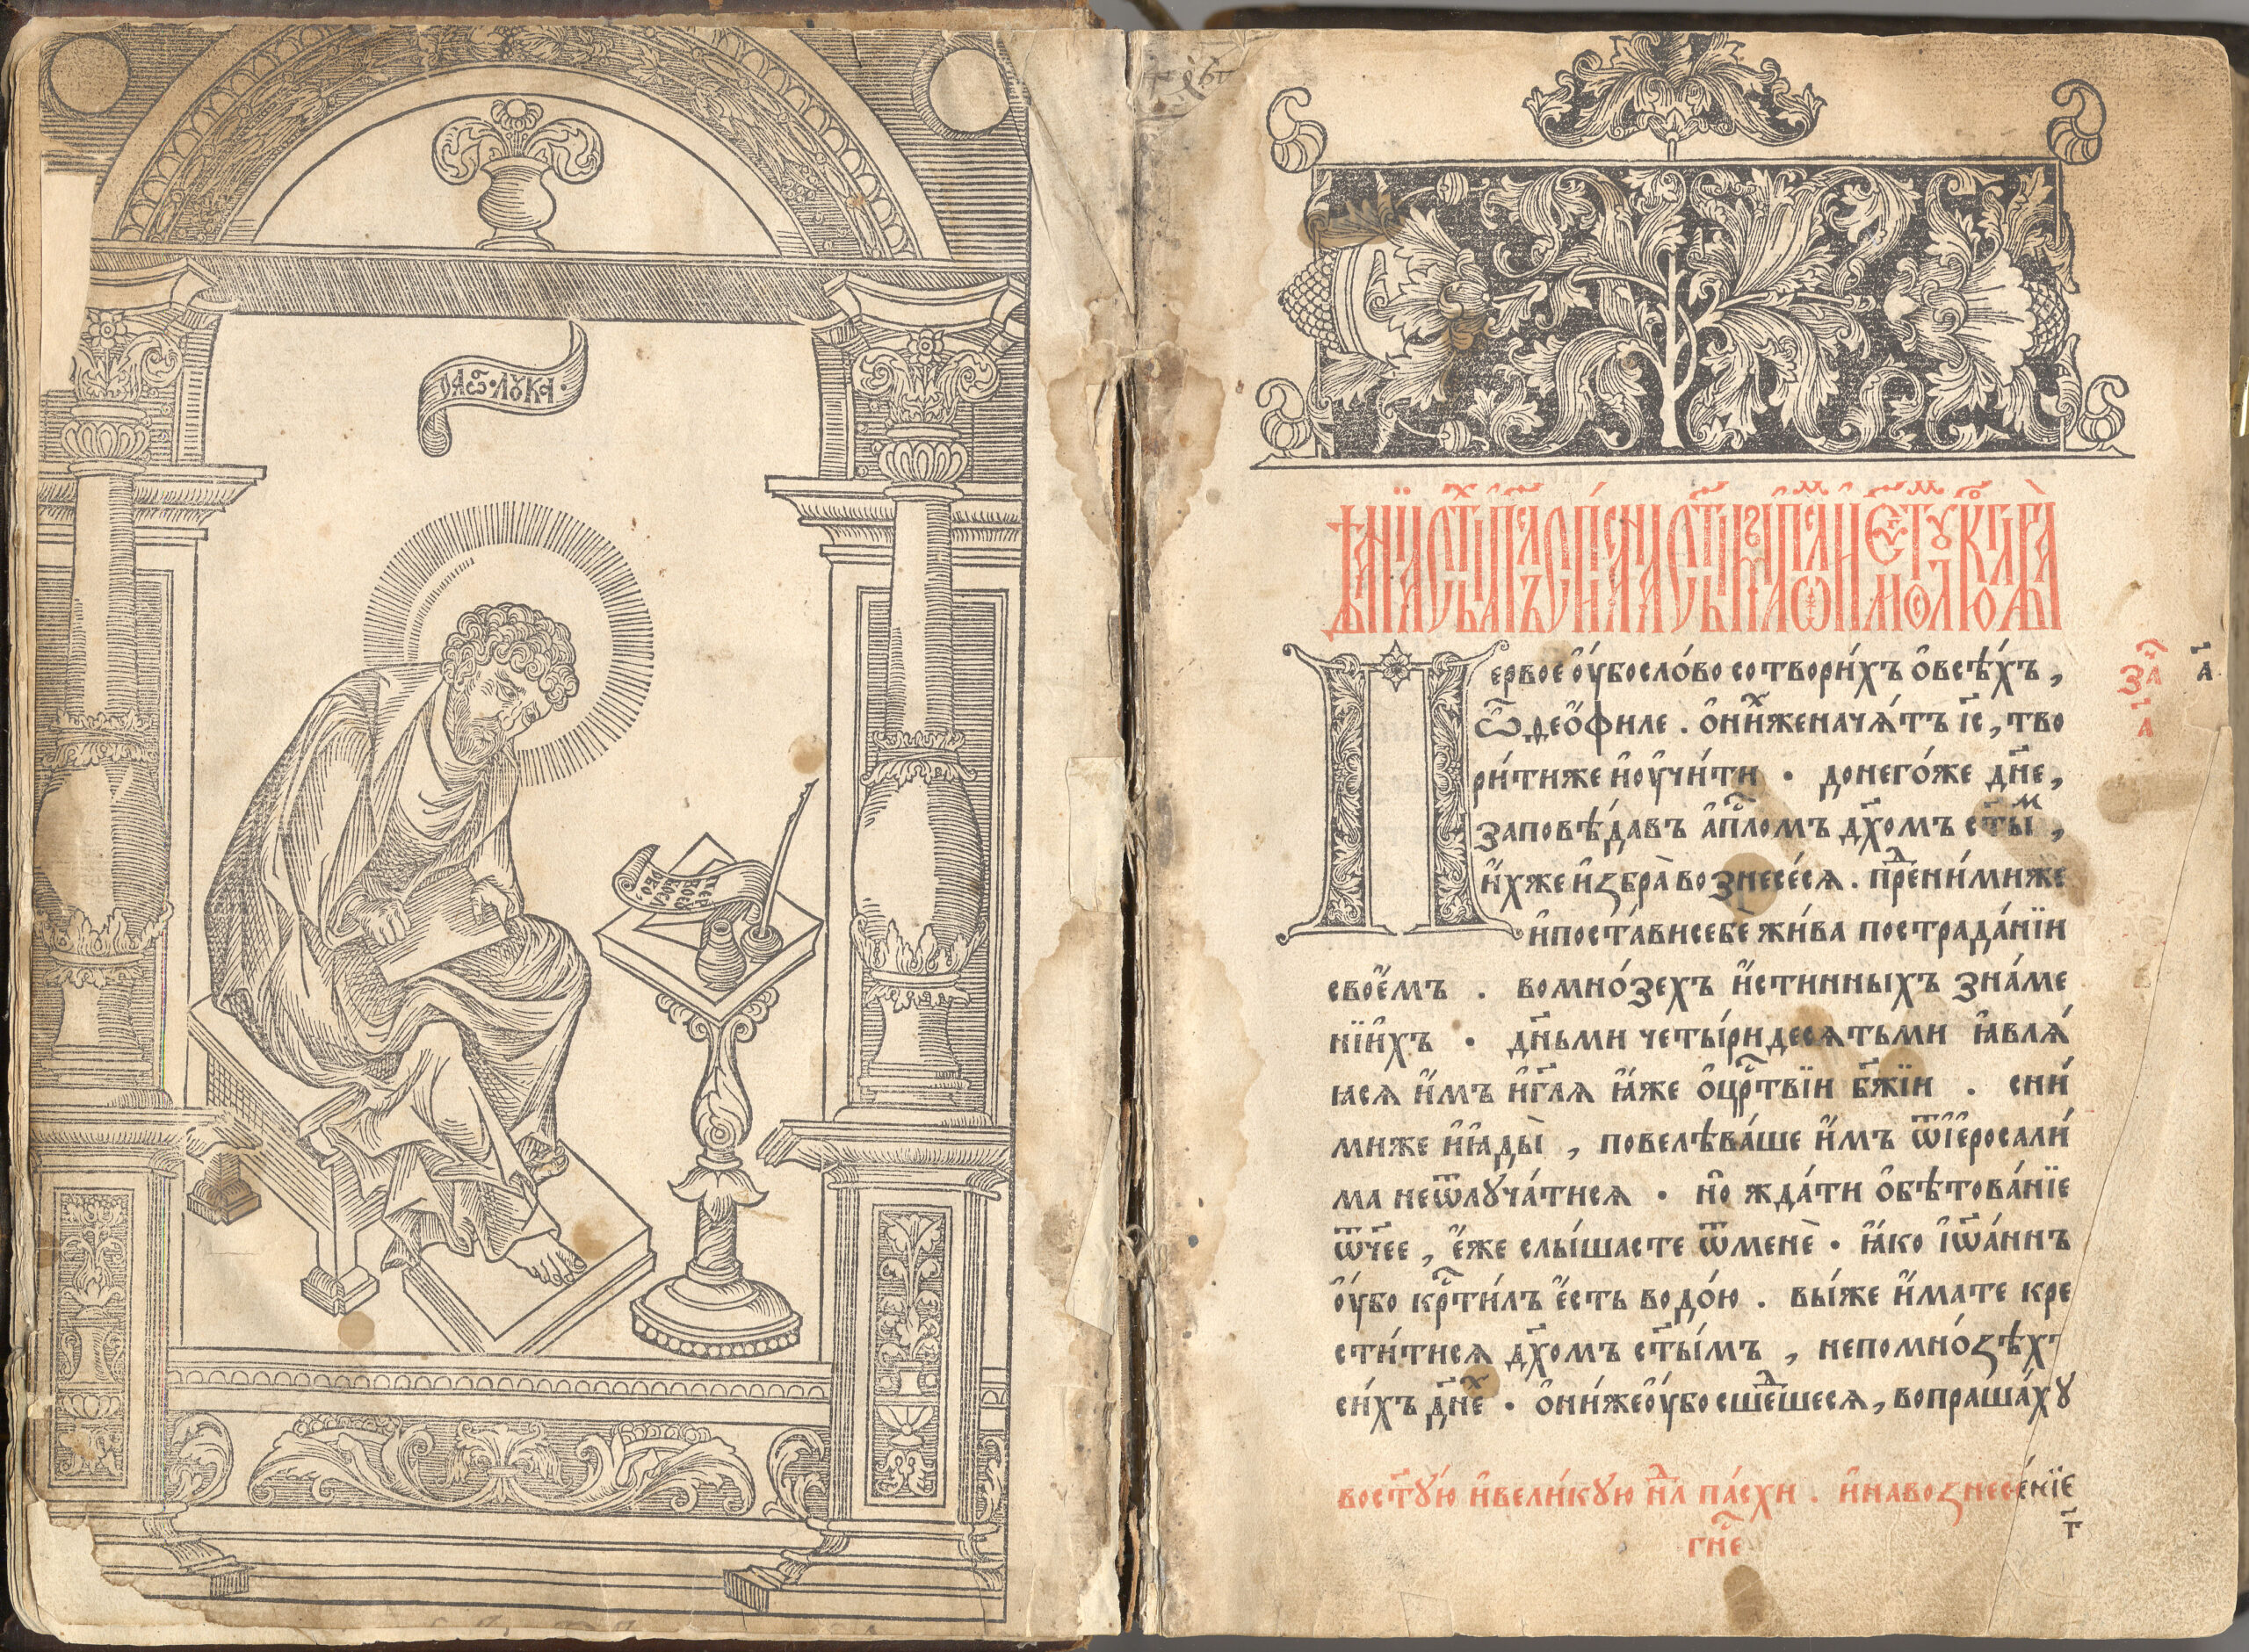 ОАГ҃Ѡ · ЛУКА ·
ДѢꙖ҆НІѦ СТ҃ЫХЪ АП҃ЛЪ СПИ́САНА СТ҃ЫМЪ АП҃ЛОМЪ И҆ Е҆ѴⷢЛИСТОМЪ ЛУКОЮ
Первое ᲂу҆́бо сло́во сотвори́хъ ѡ҆ всѣ́хъ ,
ѽ ѳео́филе . ѻ҆ни́хже нача́тъ і҆с҃ , тво
ри́тиже и҆ ᲂу҆чи́ти · донего́же дн҃е ,
заповѣ́давъ а҆пⷭ҇ломъ дх҃омъ ст҃ыⷨ ,
и҆́хже и҆збра̀ вознесе́сѧ . преⷣ ни́миже
и҆ поста́ви себѐ жи́ва по страда́нїи
свое́мъ . во мно́зехъ и҆́стинныхъ зна́ме
нїихъ · дн҃ьми четы́ридесѧтьми ꙗ҆влѧ́
ꙗсѧ и҆́мъ и҆ гл҃ѧ ꙗ҆́же ѻ҆ црⷭ҇твїи бж҃їи . сни́
миже и҆ ꙗ҆ды̀ , повелѣва́ше и҆́мъ ѿ і҆еросали́
ма не ѿлꙋча́тисѧ · но̑ жда́ти ѻ҆бѣтова́нїе
ѿч҃ее , е҆́же слы́шасте ѿ менѐ · ꙗ҆́ко і҆ѡ҃а́ннъ
ᲂу҆́бо крⷭ҇ти́лъ е҆́сть водо́ю . вы́же и҆́мате кре
сти́тисѧ дх҃омъ ст҃ы́мъ , непомно́ѕѣхъ
си́хъ дн҃еⷯ · ѻ҆ни́же ᲂу҆́бо сшеⷣшесѧ , вопраша́хꙋ
во ст҃ꙋ́ю и҆ вели́кꙋю нⷣлⷭ҇ па́схи . и҆ на воѕнесе́нїе
гнⷭ҇е
заⷱ҇
а҃
а҃
г҃